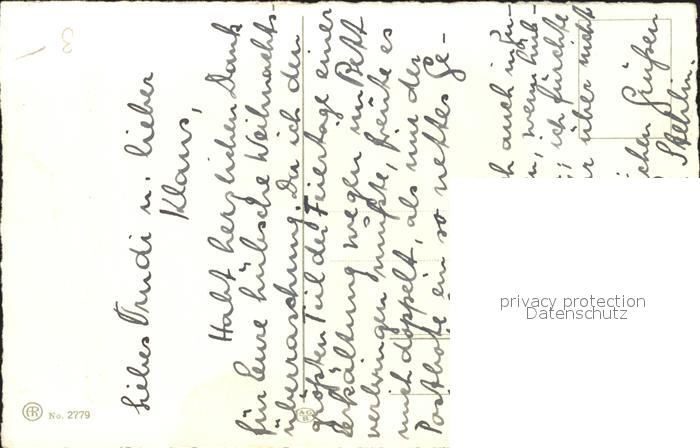 Liebes Trudi u. lieber
Klaus,
Habt herzlichen Dank
für Eure hübsche Weihnachts-
überraschung. Da ich den
größten Teil der Feiertage einer
Erkältung wegen im Bett
verbringen mußte, freute es
mich doppelt, als mir der
Postbote ein so nettes Ge-
auch in
wenn
ich fürchte
über nicht
Grüßen
Stehlin.
No. 2779
privacy protection
Datenschutz